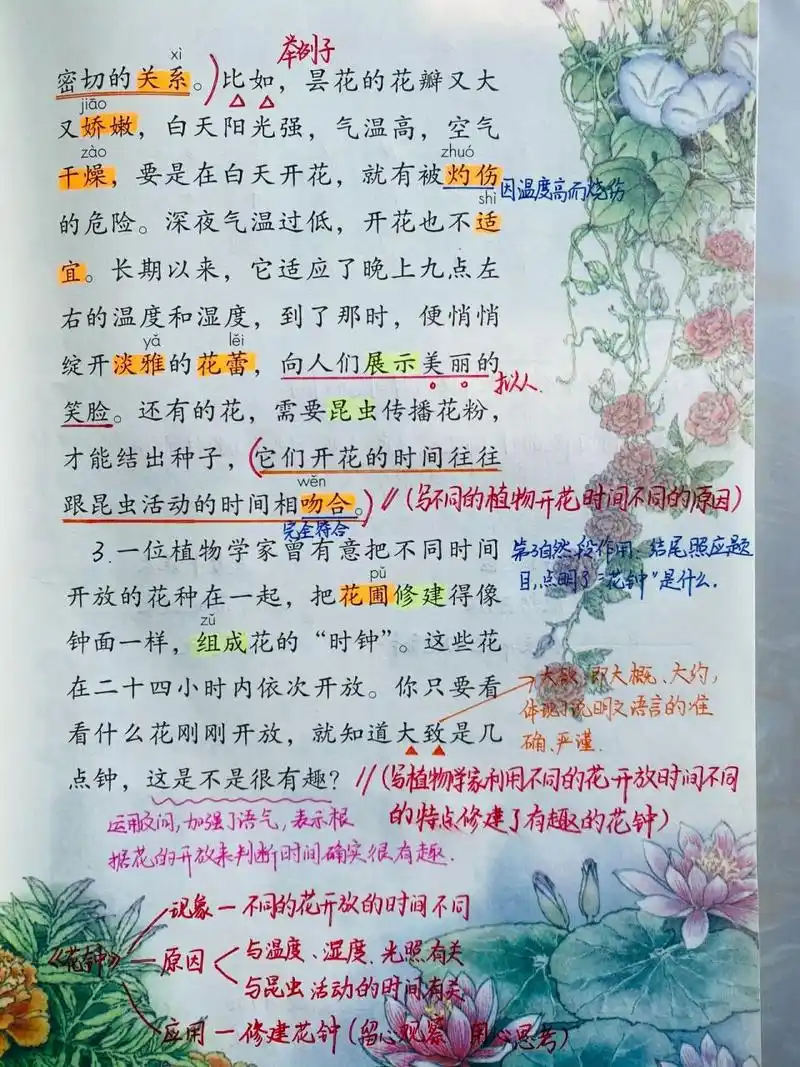 举例子
xì
密切的关系。）比如，昙花的花瓣又大
jiāo
又娇嫩，白天阳光强，气温高，空气
zào zhuó
干燥，要是在白天开花，就有被灼伤
因温度高而烧伤
shì
的危险。深夜气温过低，开花也不适
宜。长期以来，它适应了晚上九点左
右的温度和湿度，到了那时，便悄悄
yǎ lěi
绽开淡雅的花蕾，向人们展示美丽的
拟人
笑脸。还有的花，需要昆虫传播花粉，
才能结出种子，（它们开花的时间往往
wěn
跟昆虫活动的时间相吻合。）//（写不同的植物开花时间不同的原因）
完全符合
3.一位植物学家曾有意把不同时间
第3自然段作用：结尾照应题
目，点明了“花钟”是什么.
pǔ
开放的花种在一起，把花圃修建得像
zǔ
钟面一样，组成花的“时钟”。这些花
在二十四小时内依次开放。你只要看
大致，即大概、大约，
体现了说明文语言的准
确、严谨.
看什么花刚刚开放，就知道大致是几
点钟，这是不是很有趣？//（写植物学家利用不同的花开放时间不同
的特点修建了有趣的花钟）
运用反问，加强了语气，表示根
据花的开放来判断时间确实很有趣.
《花钟》
现象－不同的花开放的时间不同
原因
与温度、湿度、光照有关
与昆虫活动的时间有关
应用－修建花钟（留心观察 用心思考）